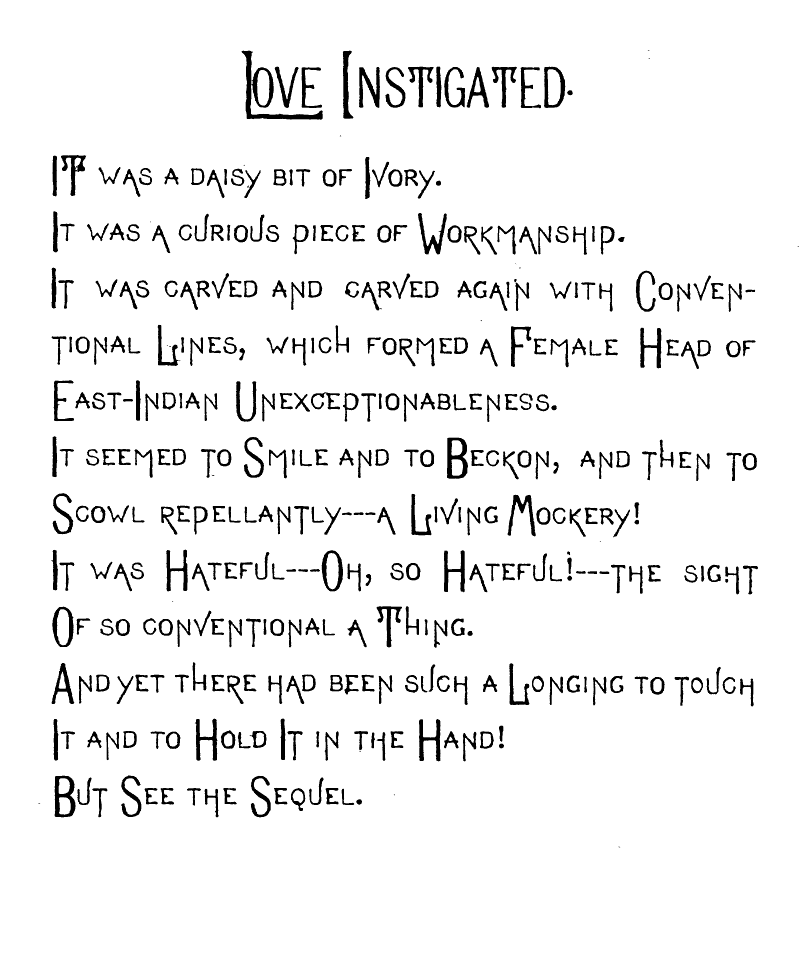 Love Instigated.
It was a daisy bit of Ivory.
It was a curious piece of Workmanship.
It was carved and carved again with Conven-
tional Lines, which formed a Female Head of
East-Indian Unexceptionableness.
It seemed to Smile and to Beckon, and then to
Scowl repellantly---a Living Mockery!
It was Hateful---Oh, so Hateful!---the sight
Of so conventional a Thing.
And yet there had been such a Longing to touch
It and to Hold It in the Hand!
But See the Sequel.